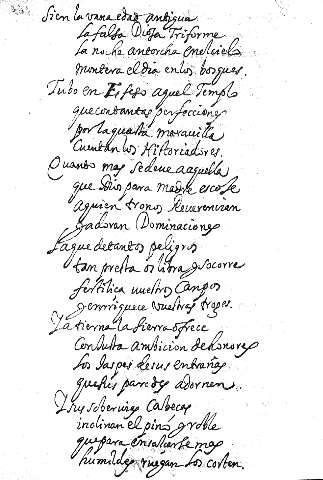 Si en la vana edad antigua
la falsa Diosa Triforme
la noche antorcha en el cielo
montera el dia en los bosques.
Tubo en Efeso aquel Templo
que con tantas perfecciones
por la quarta maravilla
Cuentan los Historiadores.
Quanto mas se deve a aquella
que Dios para madre escoje
a quien tronos Reverencian
y adoran Dominaciones
La que de tantos peligros
tan presta os libra y socorre
fertiliça vuestros Campos
y enrriquece vuestras troxes.
Ya tierna la sierra ofrece
Con justa ambicion de honores
los jaspes de sus entrañas
que sus paredes adornen.
Y sus sobervias Cabeças
inclinan el pino y roble
que para ensalçarse mas
humildes ruegan los corten.